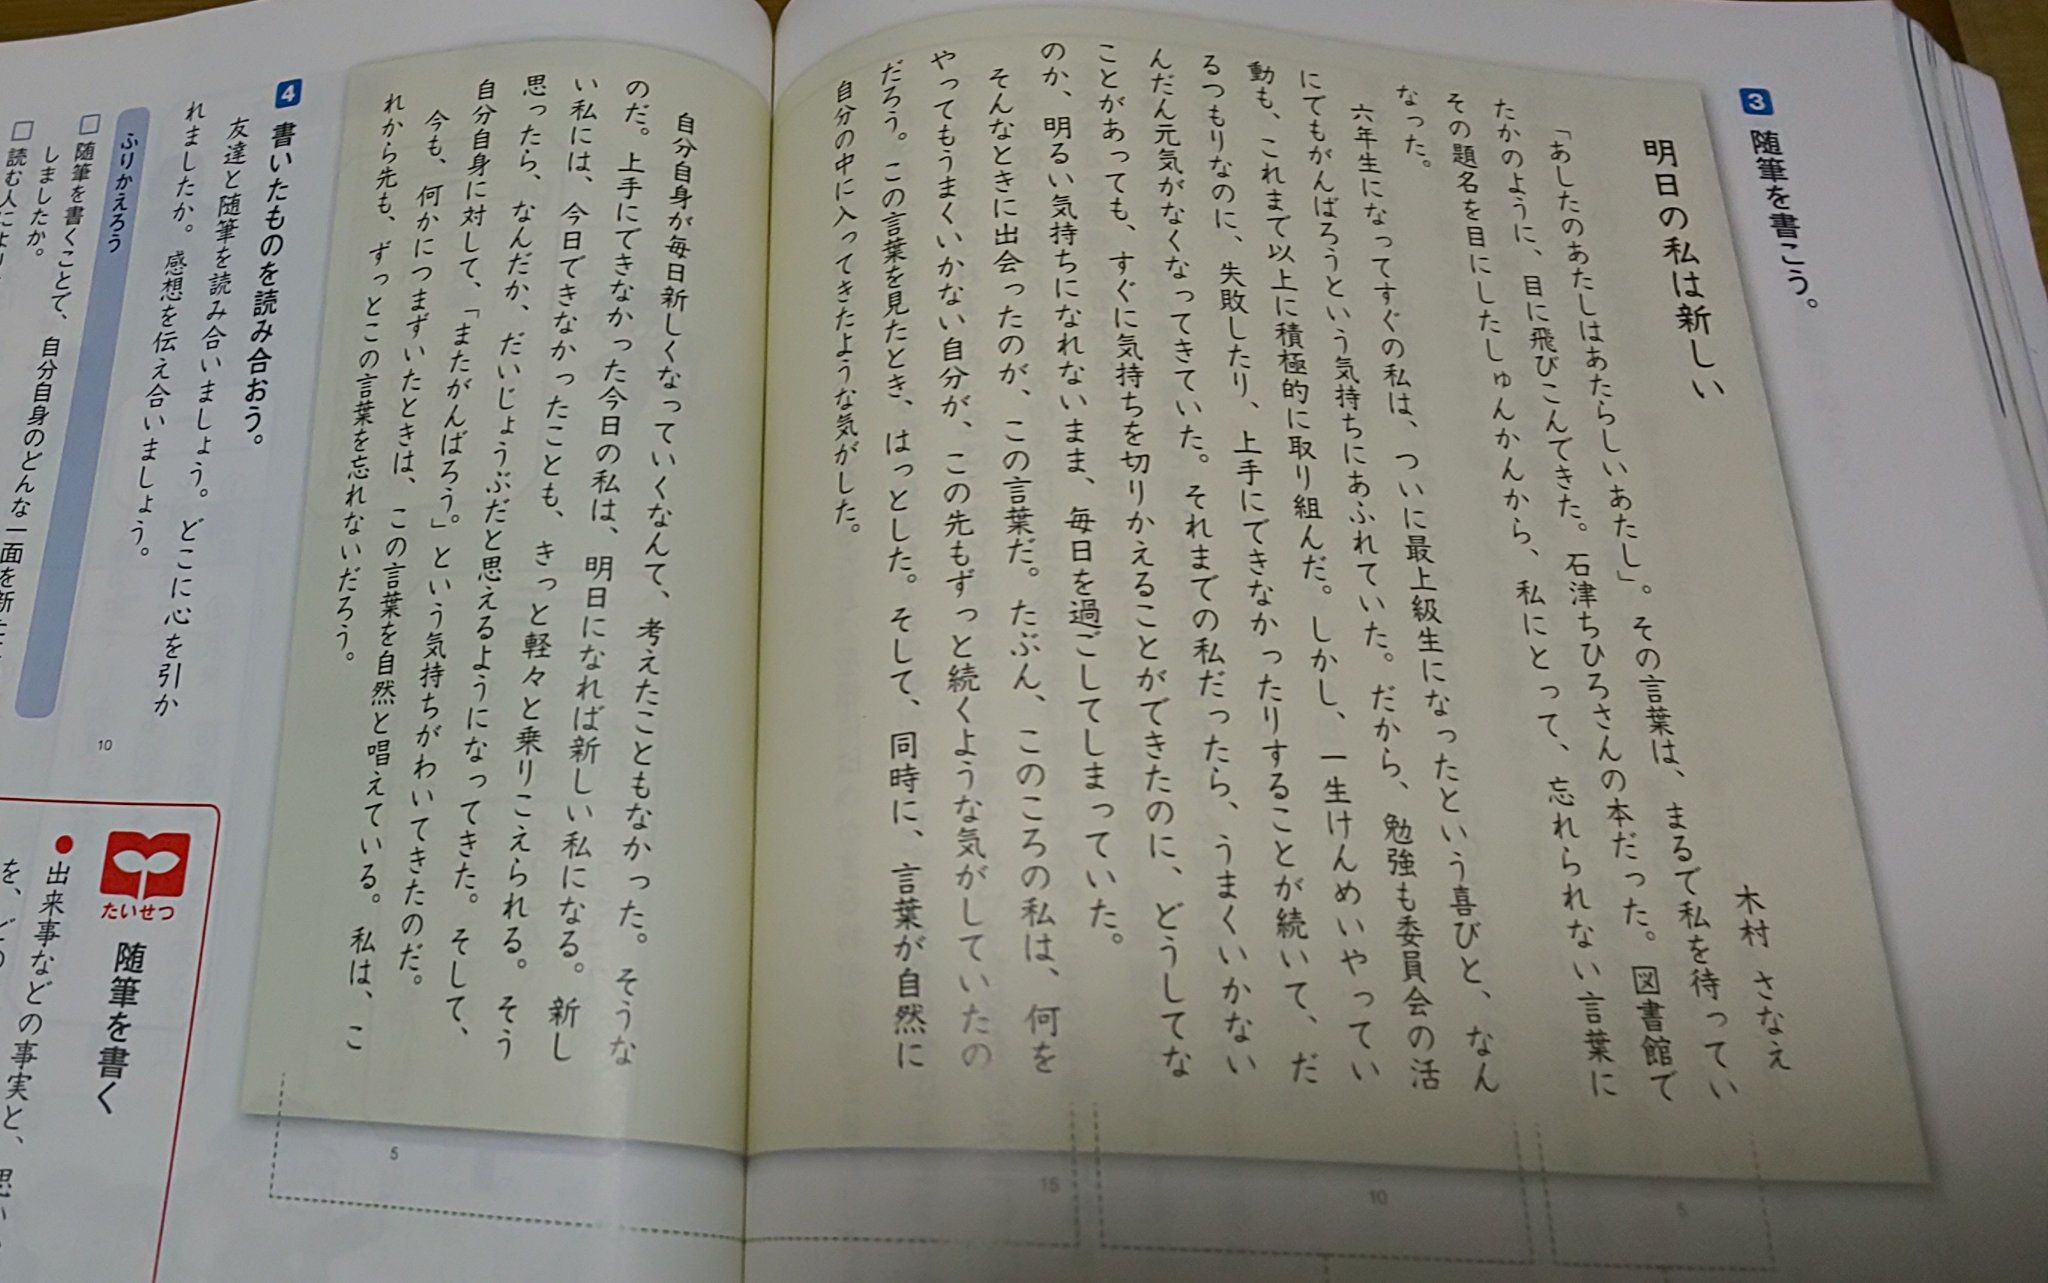 3 随筆を書こう。
明日の私は新しい
木村 さなえ
「あしたのあたしはあたらしいあたし」。その言葉は、まるで私を待ってい
たかのように、目に飛びこんできた。石津ちひろさんの本だった。図書館で
その題名を目にしたしゅんかんから、私にとって、忘れられない言葉に
なった。
六年生になってすぐの私は、ついに最上級生になったという喜びと、なん
にてもがんばろうという気持ちにあふれていた。だから、勉強も委員会の活
動も、これまで以上に積極的に取り組んだ。しかし、一生けんめいやってい
るつもりなのに、失敗したり、上手にできなかったりすることが続いて、だ
んだん元気がなくなってきていた。それまでの私だったら、うまくいかない
ことがあっても、すぐに気持ちを切りかえることができたのに、どうしてな
のか、明るい気持ちになれないまま、毎日を過ごしてしまっていた。
そんなときに出会ったのが、この言葉だ。たぶん、このころの私は、何を
やってもうまくいかない自分が、この先もずっと続くような気がしていたの
だろう。この言葉を見たとき、はっとした。そして、同時に、言葉が自然に
自分の中に入ってきたような気がした。
5
10
15
自分自身が毎日新しくなっていくなんて、考えたこともなかった。そうな
のだ。上手にできなかった今日の私は、明日になれば新しい私になる。新し
い私には、今日できなかったことも、きっと軽々と乗りこえられる。そう
思ったら、なんだか、だいじょうぶだと思えるようになってきた。そして、
自分自身に対して、「またがんばろう。」という気持ちがわいてきたのだ。
今も、何かにつまずいたときは、この言葉を自然と唱えている。私は、こ
れから先も、ずっとこの言葉を忘れないだろう。
5
4 書いたものを読み合おう。
友達と随筆を読み合いましょう。どこに心を引か
れましたか。感想を伝え合いましょう。
ふりかえろう
□ 随筆を書くことで、自分自身のどんな一面を新
しましたか。
□ 読む人に
10
たいせつ
随筆を書く
● 出来事などの事実と、思い
を、どの